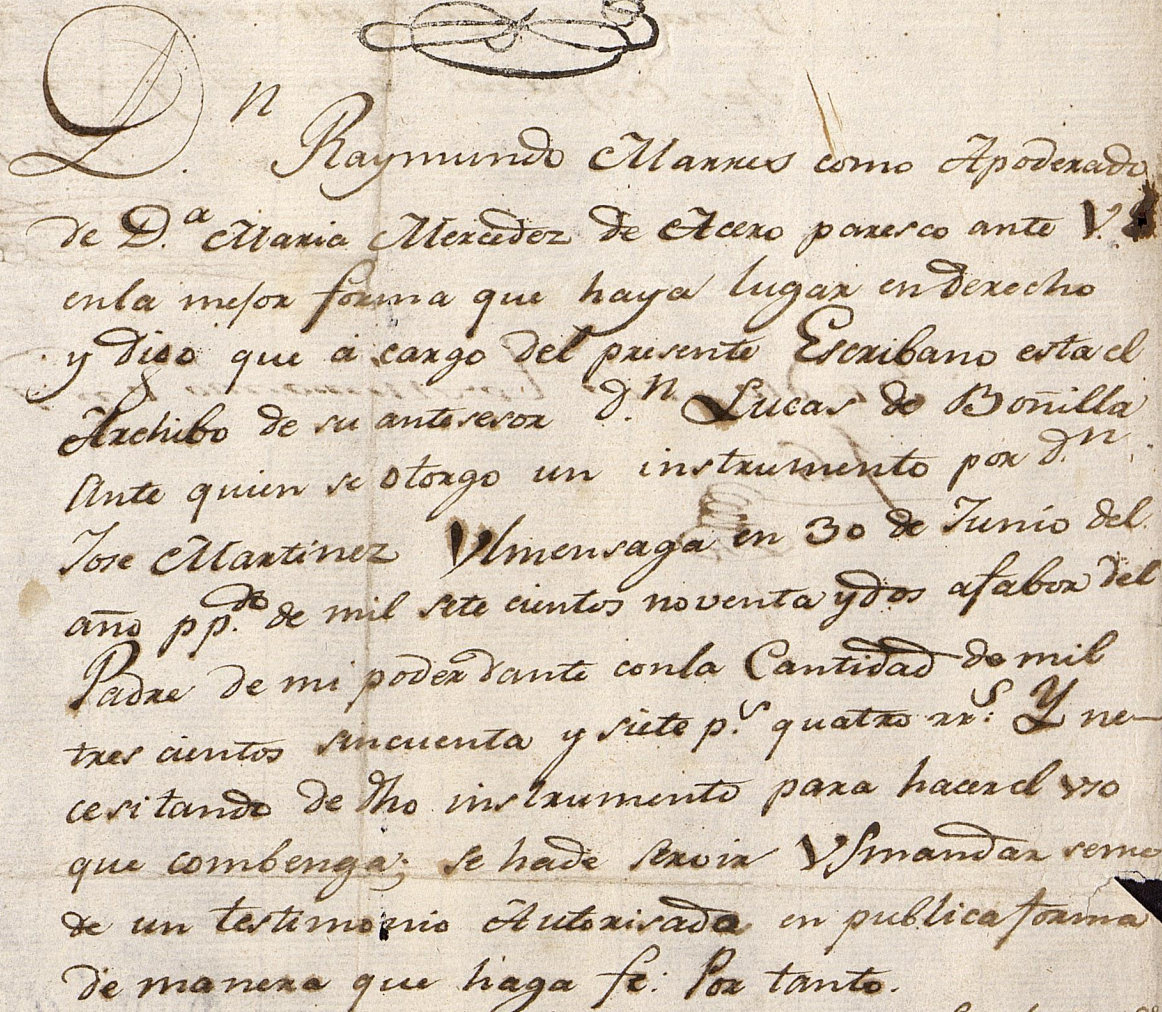 Dn Raymundo Marres como Apoderado
de D.a Maria Mercedez de Acero paresco ante V.S
enla mejor forma que haya lugar en derecho
y digo que á cargo del presente Escribano esta el
Archibo de su antesesor d.n Lucas de Boñilla
Ante quien se otorgo un instrumento por d.n
Jose Martinez Ulmensaga en 30 de Junio del
año pp.do de mil sete cientos noventa y dos afabor del
Padre de mi poderdante conla Cantidad de mil
tres cientos sincuenta y siete p.s quatro rr.s Y ne-
cesitando de dho instrumento para hacer el vzo
que combenga; se hade servir VS mandar seme
de un testimonio Autorisado en publica forma
de manera que haga fe: Por tanto.